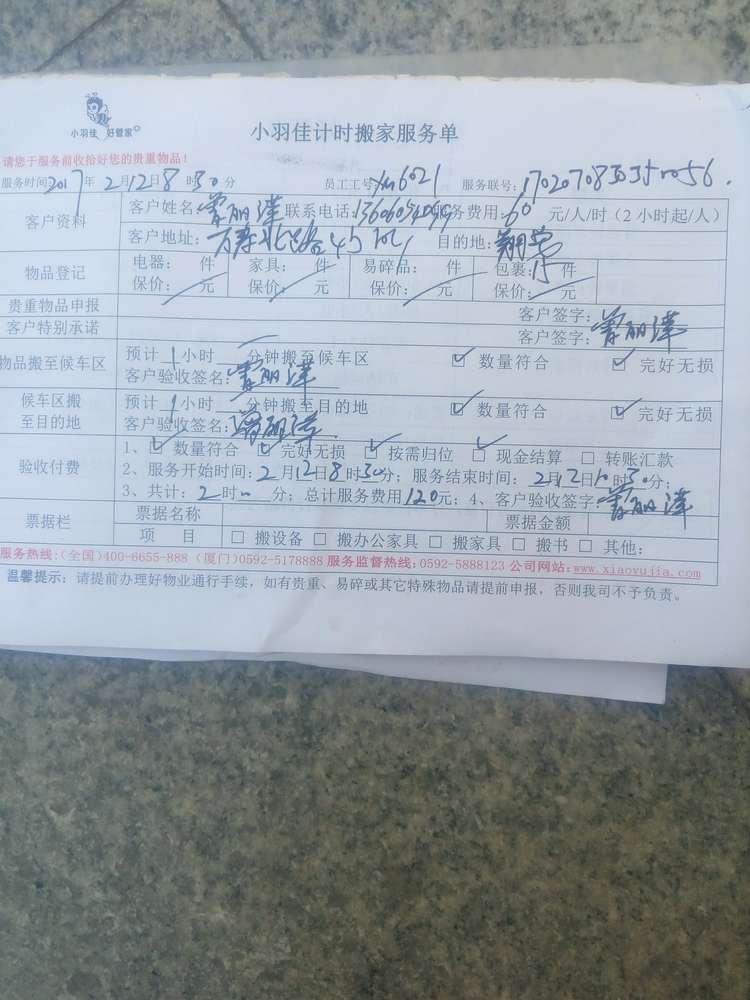 小羽佳 好管家
小羽佳计时搬家服务单
请您于服务前收拾好您的贵重物品！
服务时间：2017年2月12日8时30分 员工工号：xm6021 服务联号：
客户资料 客户姓名：曾丽萍 联系电话： 服务费用：60元/人/时（2小时起/人）
客户地址：万寿北路45 目的地：翔安
物品登记 电器： 件 家具： 件 易碎品： 件 包裹：15件
保价： 元 保价： 元 保价： 元 保价： 元
贵重物品申报 客户签字：曾丽萍
客户特别承诺 客户签字：
物品搬至候车区 预计1小时 分钟搬至候车区 ☑数量符合 ☑完好无损
客户验收签名：曾丽萍
候车区搬至目的地 预计1小时 分钟搬至目的地 ☑数量符合 ☑完好无损
客户验收签名：曾丽萍
验收付费 1、☑数量符合 ☑完好无损 ☑按需归位 ☑现金结算 □转账汇款
2、服务开始时间：2月12日8时30分；服务结束时间：2月12日10时30分；
3、共计：2时 分；总计服务费用120元；4、客户验收签字：曾丽萍
票据栏 票据名称 票据金额
项 目 □搬设备 □搬办公家具 □搬家具 □搬书 □其他：
服务热线：（全国）400-6655-888（厦门）0592-5178888 服务监督热线：0592-5888123 公司网站：www.xiaoyujia.com
温馨提示：请提前办理好物业通行手续，如有贵重、易碎或其它特殊物品请提前申报，否则我司不予负责。